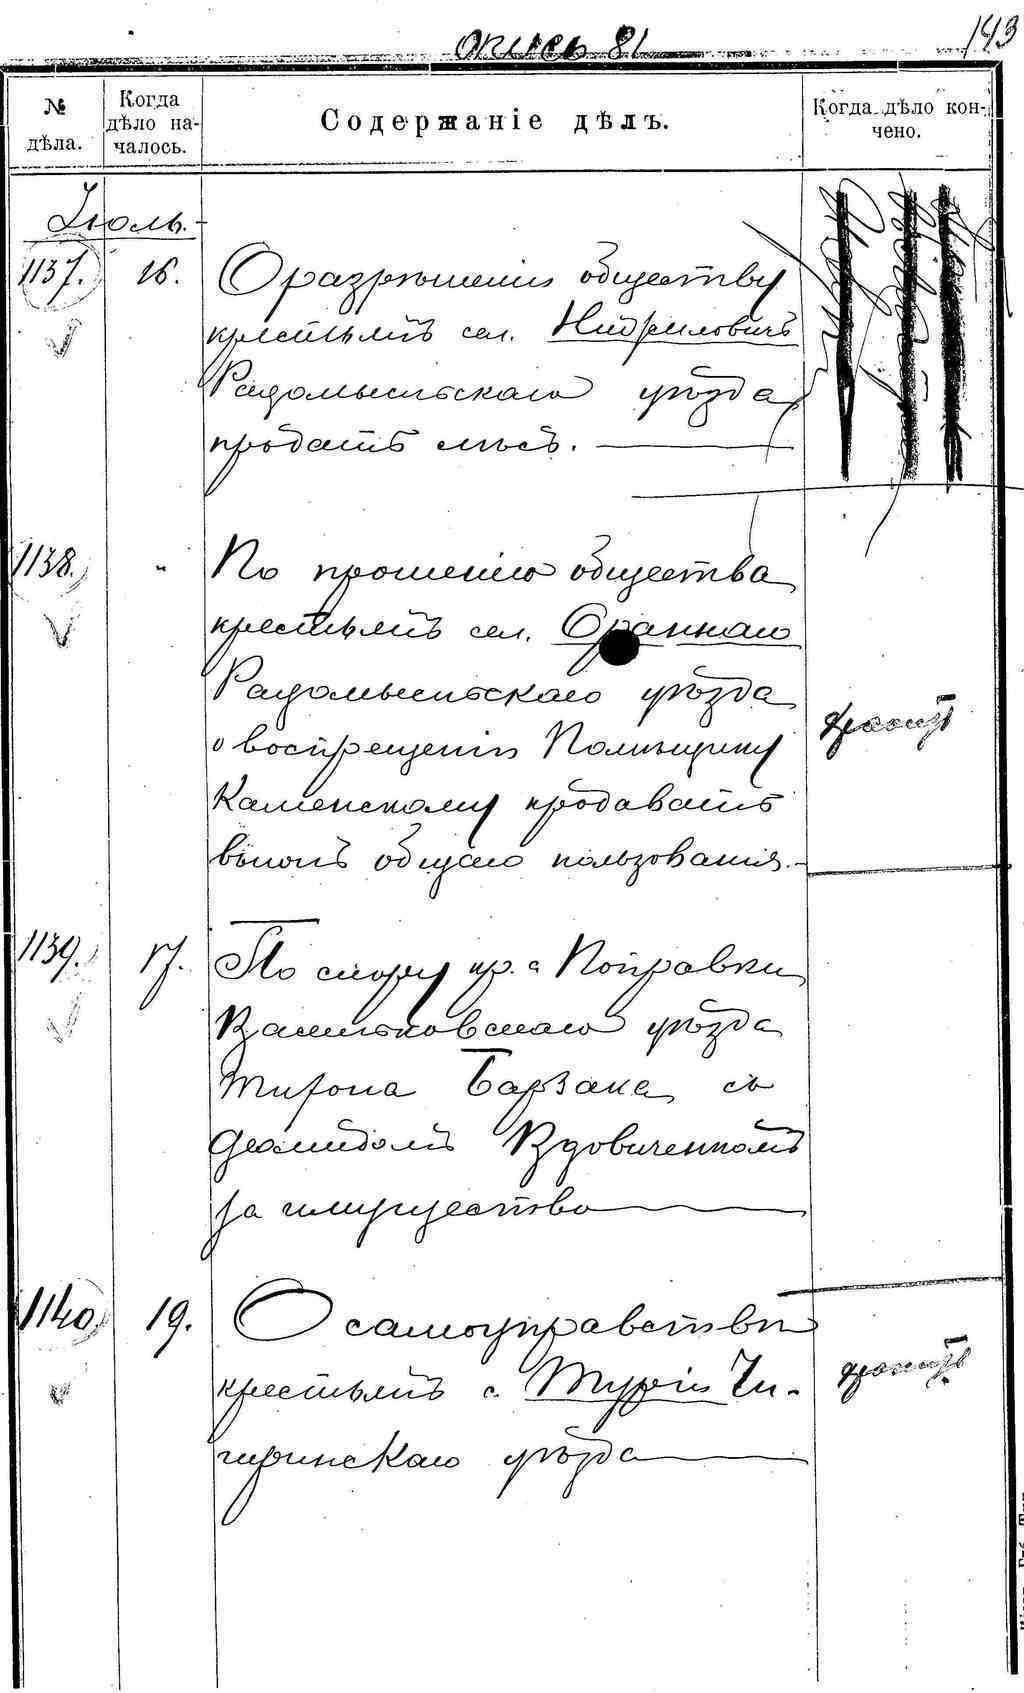 опись 81
143
№ дѣла.
Когда дѣло началось.
Содержаніе дѣлъ.
Когда дѣло кончено.
Іюль.
1137. 16. О разрѣшеніи обществу
крестьянъ сел.
Радомысльскаго уѣзда
продать лѣсъ.
1138. " По прошенію общества
крестьянъ сел. Ораннаго
Радомысльскаго уѣзда
о воспрещеніи Помѣщику
Каменскому продавать
выгонъ общаго пользованія.
1139. 17. По спору кр. с Поправки
Васильковскаго уѣзда
Мирона Барзака съ
Деомидомъ Вдовиченкомъ
за имущество
1140. 19. О самоуправствѣ
крестьянъ с. Туріи Чи-
гиринскаго уѣзда